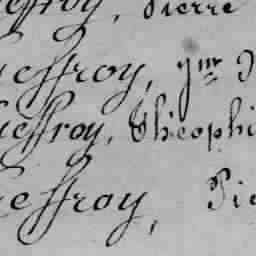 effroy, Pierre
effroy, Ym
effroy, Théophi
effroy, Pie